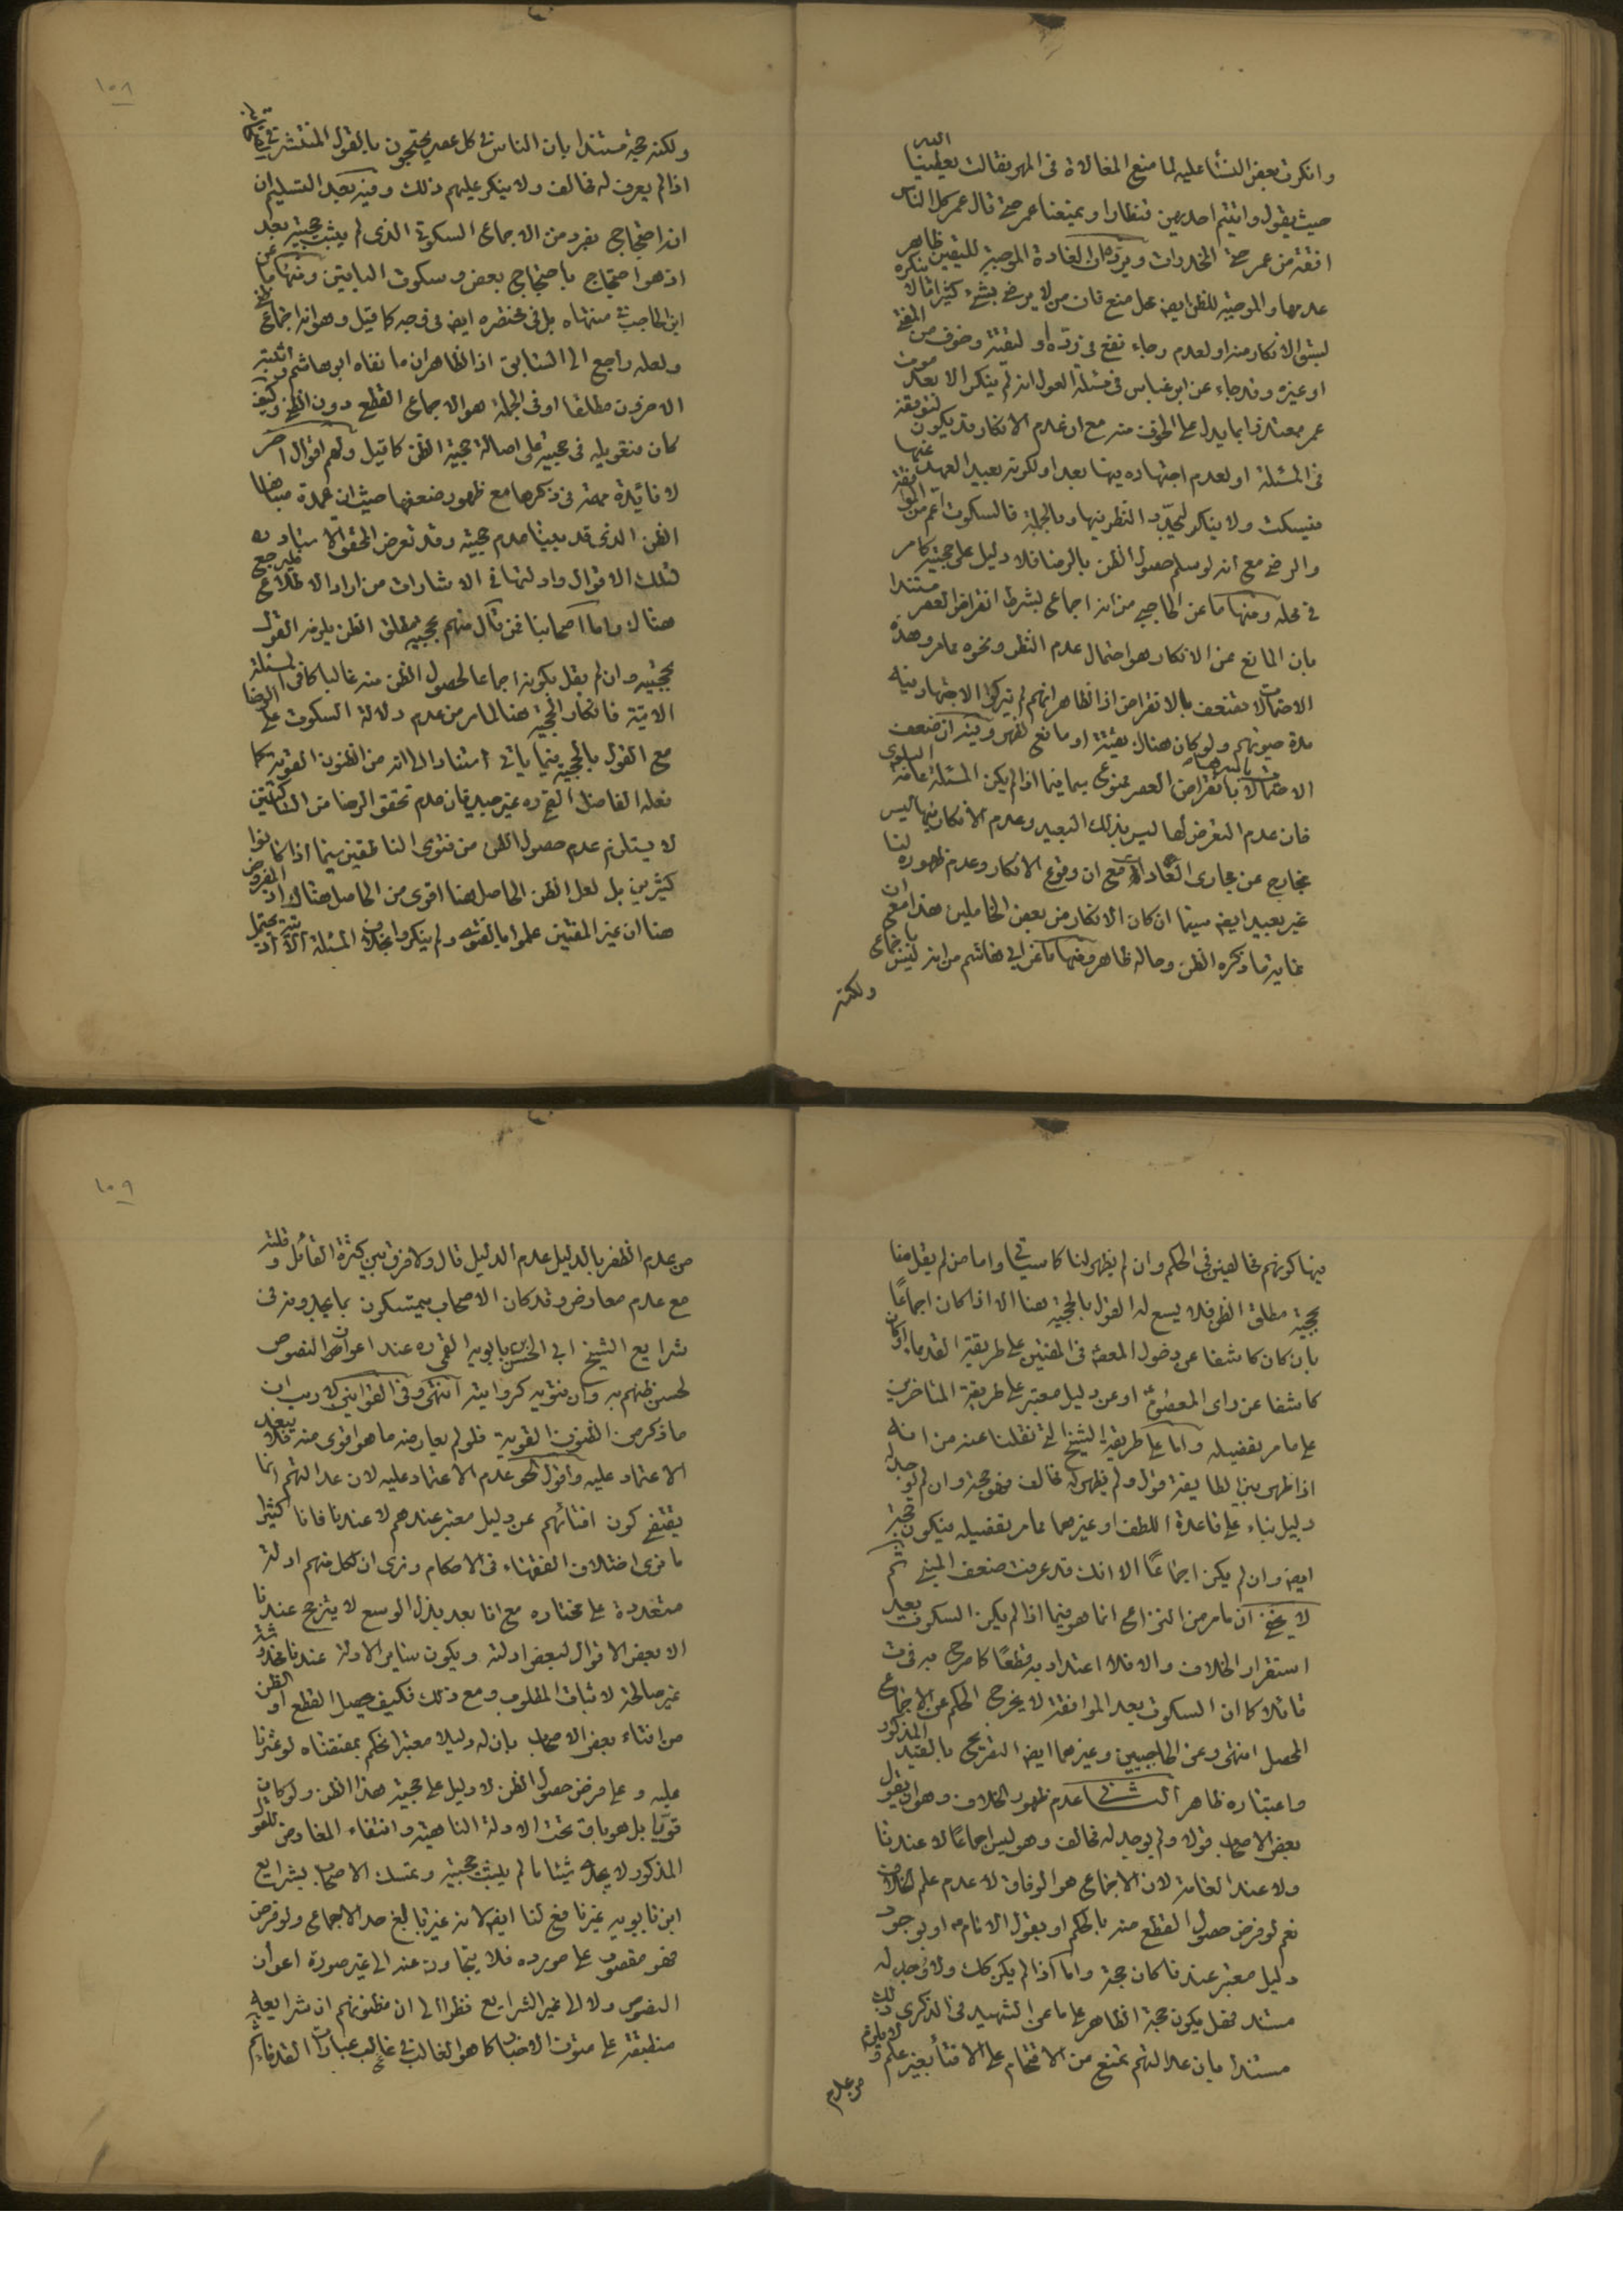 وانكرت بعض النساء عليه لما منع المغالاة فى المهر فقالت يعطينا الله
حيث يقول واتيتم احديهن قنطارا ويمنعنا عمر حتى قال عمر كل الناس
افقه من عمر حتى المخدرات ويرد ان العادة الموجبة لليقين ظاهر
عدمها والموجبة للظن ايضا محل منع فان من لا يرضى بشئ كثيرا ما لا ينكره
لسبق الانكار منه او لعدم رجاء نفع فى رده او لتقية وخوف من المفتى
او غيره وقد جاء عن ابن عباس فى مسئلة العول انه لم ينكر الا بعد موت
عمر معتذرا بما يدل على الخوف منه مع ان عدم الانكار قد يكون لتوقفه
فى المسئلة او لعدم اجتهاده فيها بعد او لكونه بعيد العهد عنها
فيسكت ولا ينكر ليجدد النظر فيها وبالجملة فالسكوت اعم من الموافقة
والرضى مع انه لو سلم حصول الظن بالرضا فلا دليل على حجيته كما مر
فى محله ومنها ما عن الحاجبى من انه اجماع بشرط انقراض العصر مستندا
بان المانع عن الانكار هو احتمال عدم النظر ونحوه مما مر وهذه
الاحتمالات تضعف بالانقراض اذ الظاهر انهم لم يتركوا الاجتهاد فيه
مدة حيوتهم ولو كان هناك تقية او مانع لظهر وفيه ان ضعف
الاحتمالات بانقراض العصر ممنوع سيما فيما اذا لم يكن المسئلة عامة البلوى
فان عدم التعرض لها ليس بذلك البعيد وعدم الانكار فيها ليس
بخارج عن مجارى العادات مع ان وقوع الانكار وعدم ظهوره لنا
غير بعيد ايضا سيما ان كان الانكار من بعض الخاملين هذا مع ان
غاية ما ذكره الظن وحاله ظاهر ومنها ما عن ابى هاشم من انه ليس باجماع
ولكنه
١٠٨
ولكنه حجة مستندا بان الناس فى كل عصر يحتجون بالقول المنتشر فى
اذا لم يعرف له مخالف ولا ينكر عليهم ذلك وفيه بعد التسليم ان
انه احتجاج بفرد من الاجماع السكوتى الذى لم يثبت حجيته بعد
اذ هو احتجاج باحتجاج بعض وسكوت الباقين ومنها ما عن
ابن الحاجب فى منتهاه بل فى مختصره ايضا فى وجه كما قيل وهو انه اجماع
ولعله راجع الى السابق اذ الظاهر ان ما نفاه ابو هاشم واثبته
الاخرون مطلقا او فى الجملة هو الاجماع القطعى دون الظنى وكيف
كان فتعويله فى حجيته على اصالة حجية الظن كما قيل ولهم اقوال اخر
لا فائدة مهمة فى ذكرها مع ظهور ضعفها حيث ان عمدة مبناها
الظن الذى قد بينا عدم حجيته وقد تعرض المحقق الاستاد ره
لتلك الاقوال وادلتها فى الاشارات من اراد الاطلاع فليرجع
هناك واما اصحابنا فمن قال منهم بحجية مطلق الظن يلزمه القول
بحجيته وان لم نقل بكونه اجماعا لحصول الظن منه غالبا كما فى المسئلة
الاتية فانكار الحجية هنا لما مر من عدم دلالة السكوت على الرضا
مع القول بالحجية فيما ياتى استنادا الى انه من الظنون القوية كما
فعله الفاضل القمى ره غير جيد فان عدم تحقق الرضا من الساكتين
لا يستلزم عدم حصول الظن من فتوى الناطقين سيما اذا كانوا
كثيرين بل لعل الظن الحاصل هنا اقوى من الحاصل هناك اذ المفروض
هنا ان غير المفتين علموا بالفتوى ولم ينكروا بخلاف المسئلة الاتية اذ يحتمل
فيها كونهم مخالفين فى الحكم وان لم يظهر لنا كما سياتى واما من لم يقل منا
بحجية مطلق الظن فلا يسع له القول بالحجية هنا الا اذا كان اجماعا
بان كان كاشفا عن دخول المعصوم فى المفتين على طريقة القدماء او كان
كاشفا عن راى المعصوم او عن دليل معتبر على طريقة المتاخرين
على ما مر تفصيله واما على طريقة الشيخ التى نقلنا عنه من انه
اذا ظهر بين الطايفة قول ولم يظهر له مخالف فهو حجة وان لم يوجد له
دليل بناء على قاعدة اللطف او غيرهما مما مر تفصيله فيكون حجة
ايضا وان لم يكن اجماعا الا انك قد عرفت ضعف المبنى ثم
لا يخفى ان ما مر من النزاع انما هو فيما اذا لم يكن السكوت بعد
استقرار الخلاف والا فلا اعتداد به قطعا كما صرح به فى ت
قائلا كما ان السكوت بعد الموافقة لا يخرج الحكم عن الاجماع
المحصل انتهى وعن الحاجبيين وغيرهما ايضا التصريح بالقيد المذكور
واعتباره ظاهر الثانى عدم ظهور الخلاف وهو ان يقول
بعض الاصحاب قولا ولم يوجد له مخالف وهو ليس اجماعا لا عندنا
ولا عند العامة لان الاجماع هو الوفاق لا عدم علم الخلاف
نعم لو فرض حصول القطع منه بالحكم او بقول الامام او بوجود
دليل معتبر عندنا كان حجة واما اذا لم يكن كك ولا وجد له
مستند فهل يكون حجة الظاهر على ما عن الشهيد فى الذكرى ذلك
مستندا بان عدالتهم تمنع من الاقتحام على الافتاء بغير علم ولا يلزم
من عدم
١٠٩
من عدم الظفر بالدليل عدم الدليل قال ولا فرق بين كثرة القائل وقلته
مع عدم معارض وقد كان الاصحاب يتمسكون بما يجدونه فى
شرايع الشيخ ابى الحسن بن بابويه القمى ره عند اعواز النصوص
لحسن ظنهم به وان فتويه كروايته انتهى وفى القوانين لا ريب ان
ما ذكر من الظنون القوية فلو لم يعارضه ما هو اقوى منه فلا يبعد
الاعتماد عليه واقول الحق عدم الاعتماد عليه لان عدالتهم انما
يقتضى كون افتائهم عن دليل معتبر عندهم لا عندنا فانا كثيرا
ما نرى اختلاف الفقهاء فى الاحكام ونرى ان لكل منهم ادلة
متعددة على مختاره مع انا بعد بذل الوسع لا يترجح عندنا
الا بعض الاقوال لبعض ادلته ويكون ساير الادلة عندنا مخدوشة
غير صالحة لاثبات المطلوب ومع ذلك فكيف يحصل القطع او الظن
من افتاء بعض الاصحاب بان له دليلا معتبرا نحكم بمقتضاه لو عثرنا
عليه وعلى فرض حصول الظن لا دليل على حجية هذا الظن ولو كان
قويا بل هو باق تحت الادلة الناهية وانتفاء المعارض للقول
المذكور لا يجدى شيئا ما لم يثبت حجيته وتمسك الاصحاب بشرايع
ابن بابويه غير نافع لنا ايضا لانه غير بالغ حد الاجماع ولو فرض
فهو مقصور على مورده فلا يتجاوز عنه الى غير صورة اعواز
النصوص ولا الى غير الشرايع نظرا الى ان مظنونهم ان شرايعه
منطبقة على متون الاخبار كما هو الغالب فى غالب عبارات القدماء ثم